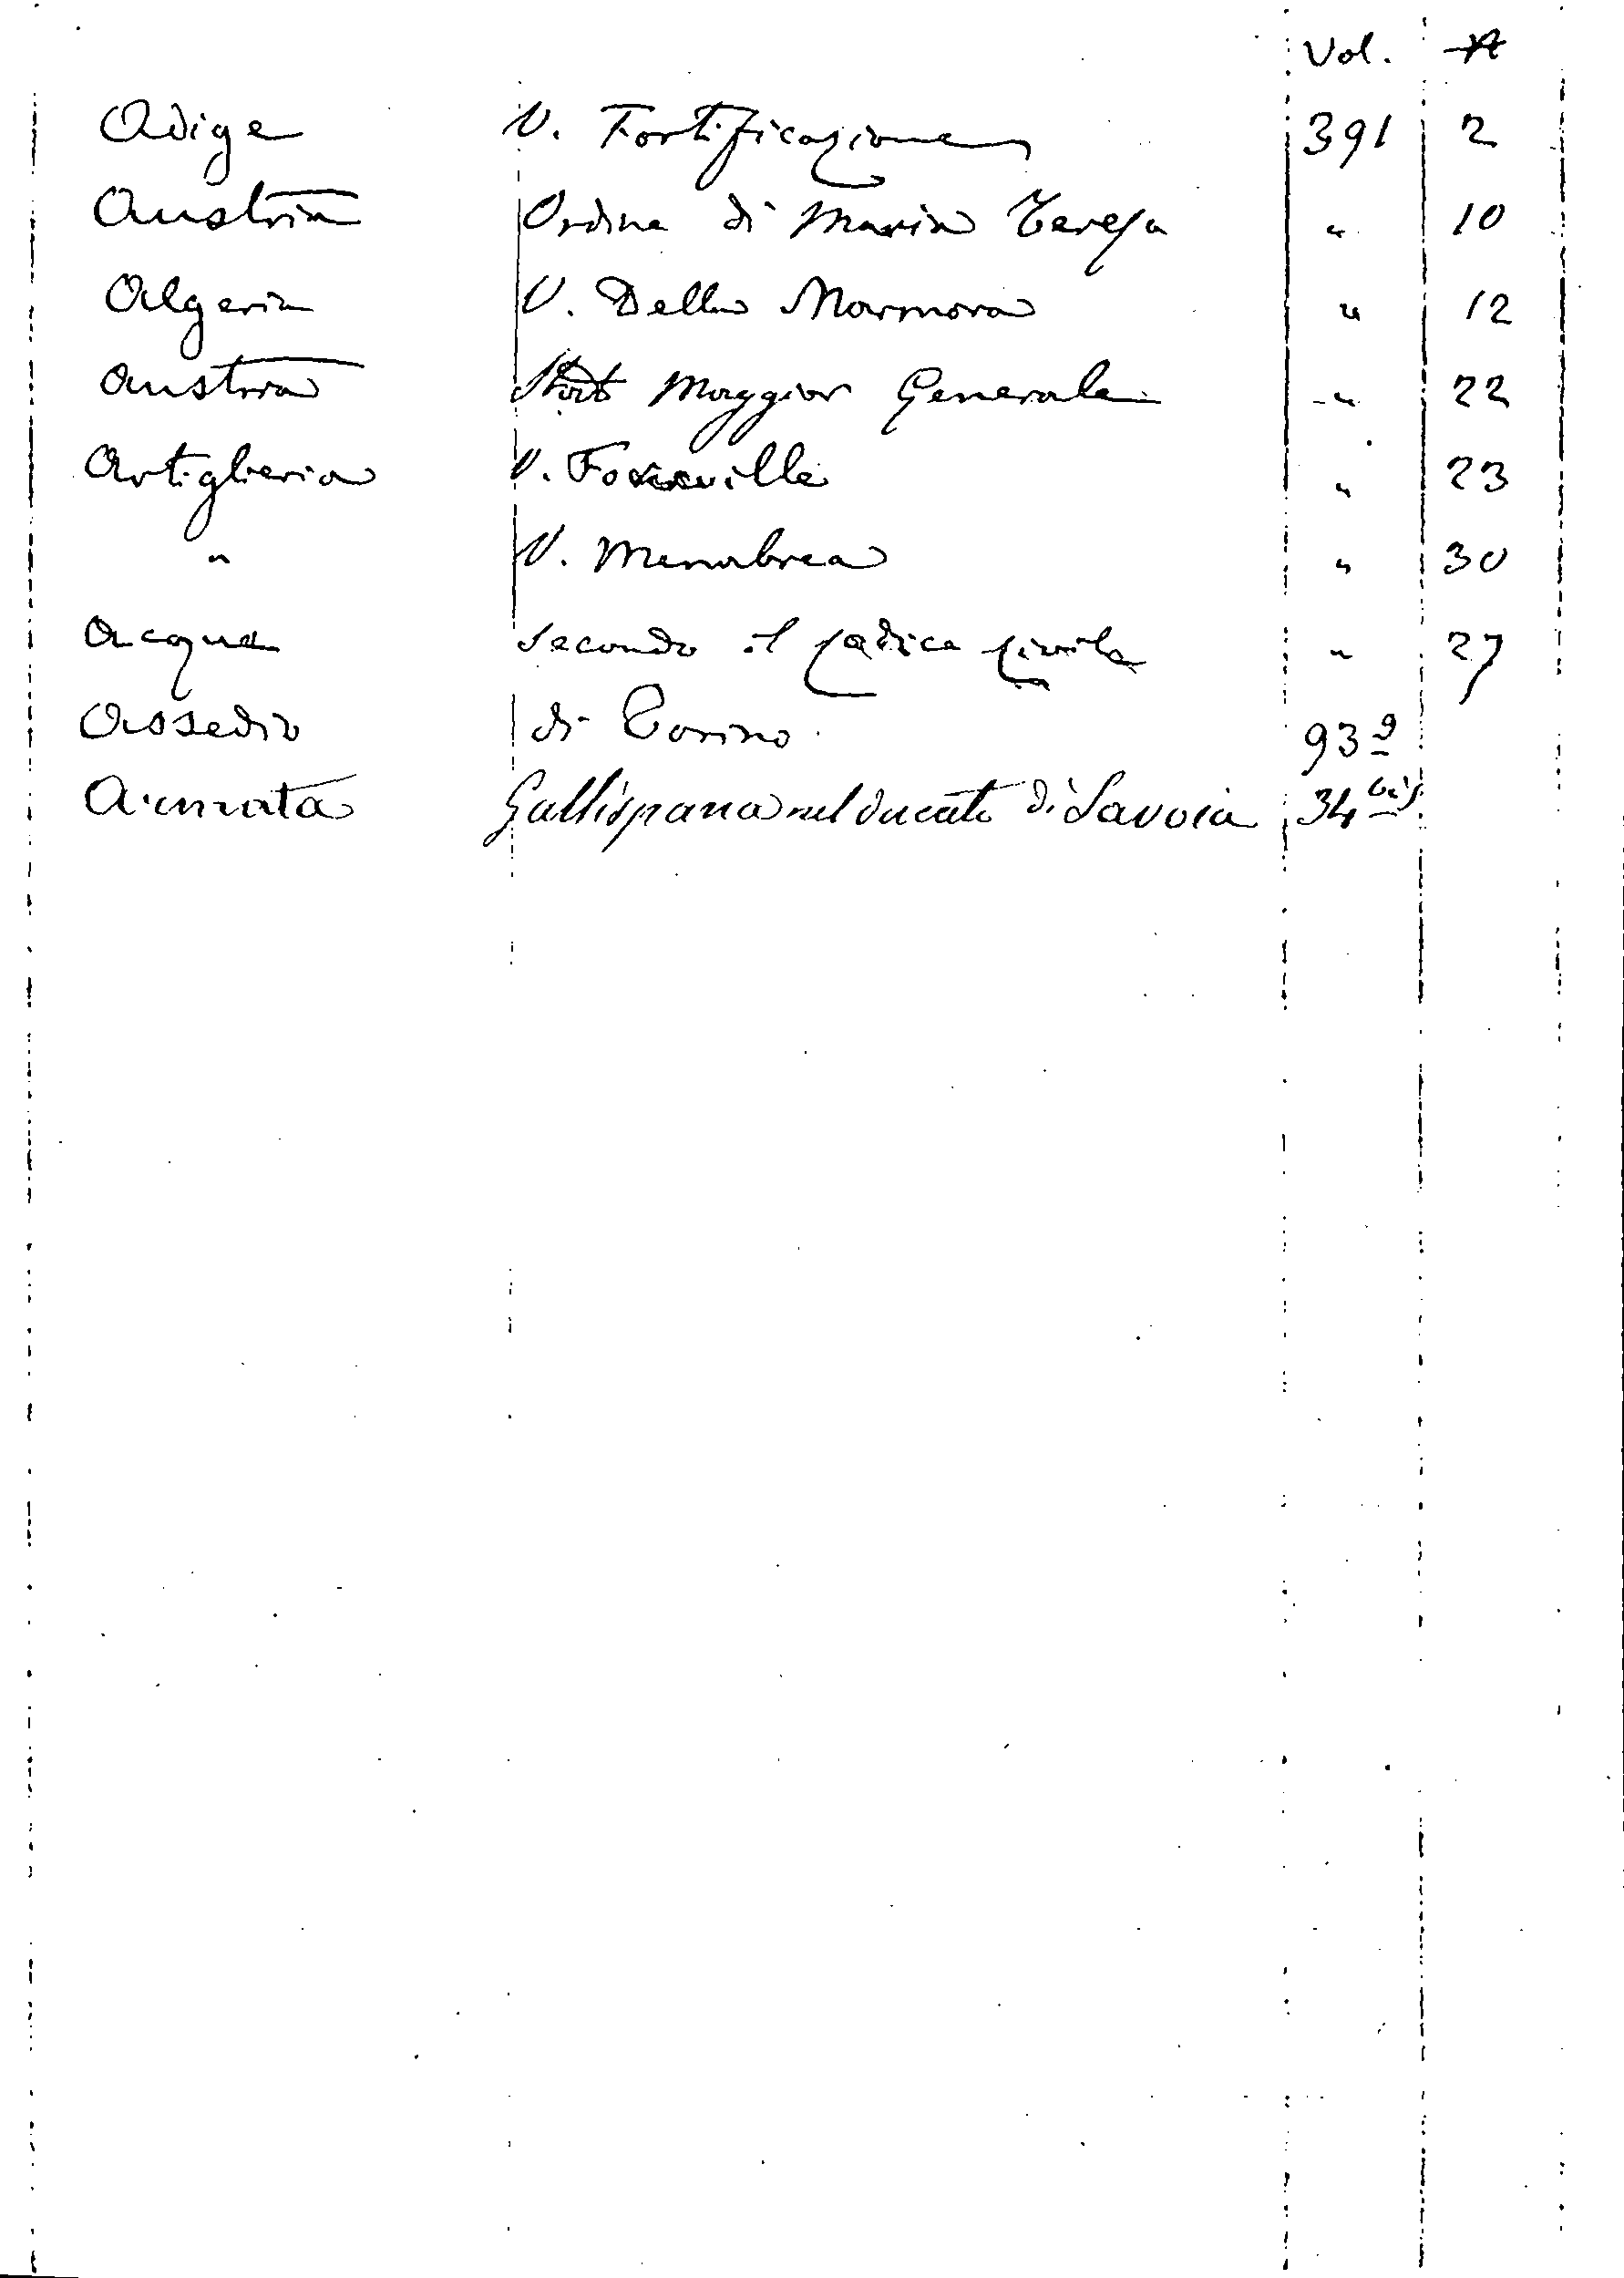 Vol. N
Adige V. Fortificazione 391 2
Austria Ordine di Maria Teresa " 10
Algeria V. Della Marmora " 12
Austria Stato Maggior Generale " 22
Artiglieria V. " 23
" V. Menabrea " 30
Acque secondo il codice civile " 27
Assedio di Torino 93 9
Armata Gallispana nel ducato di Savoia 34 bis